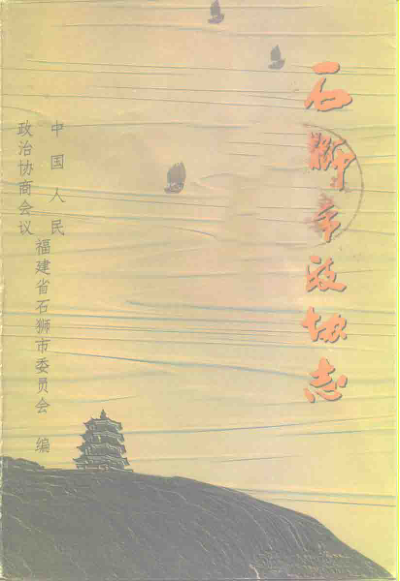 石狮市政协志
中国人民
政治协商会议
福建省石狮市委员会 编